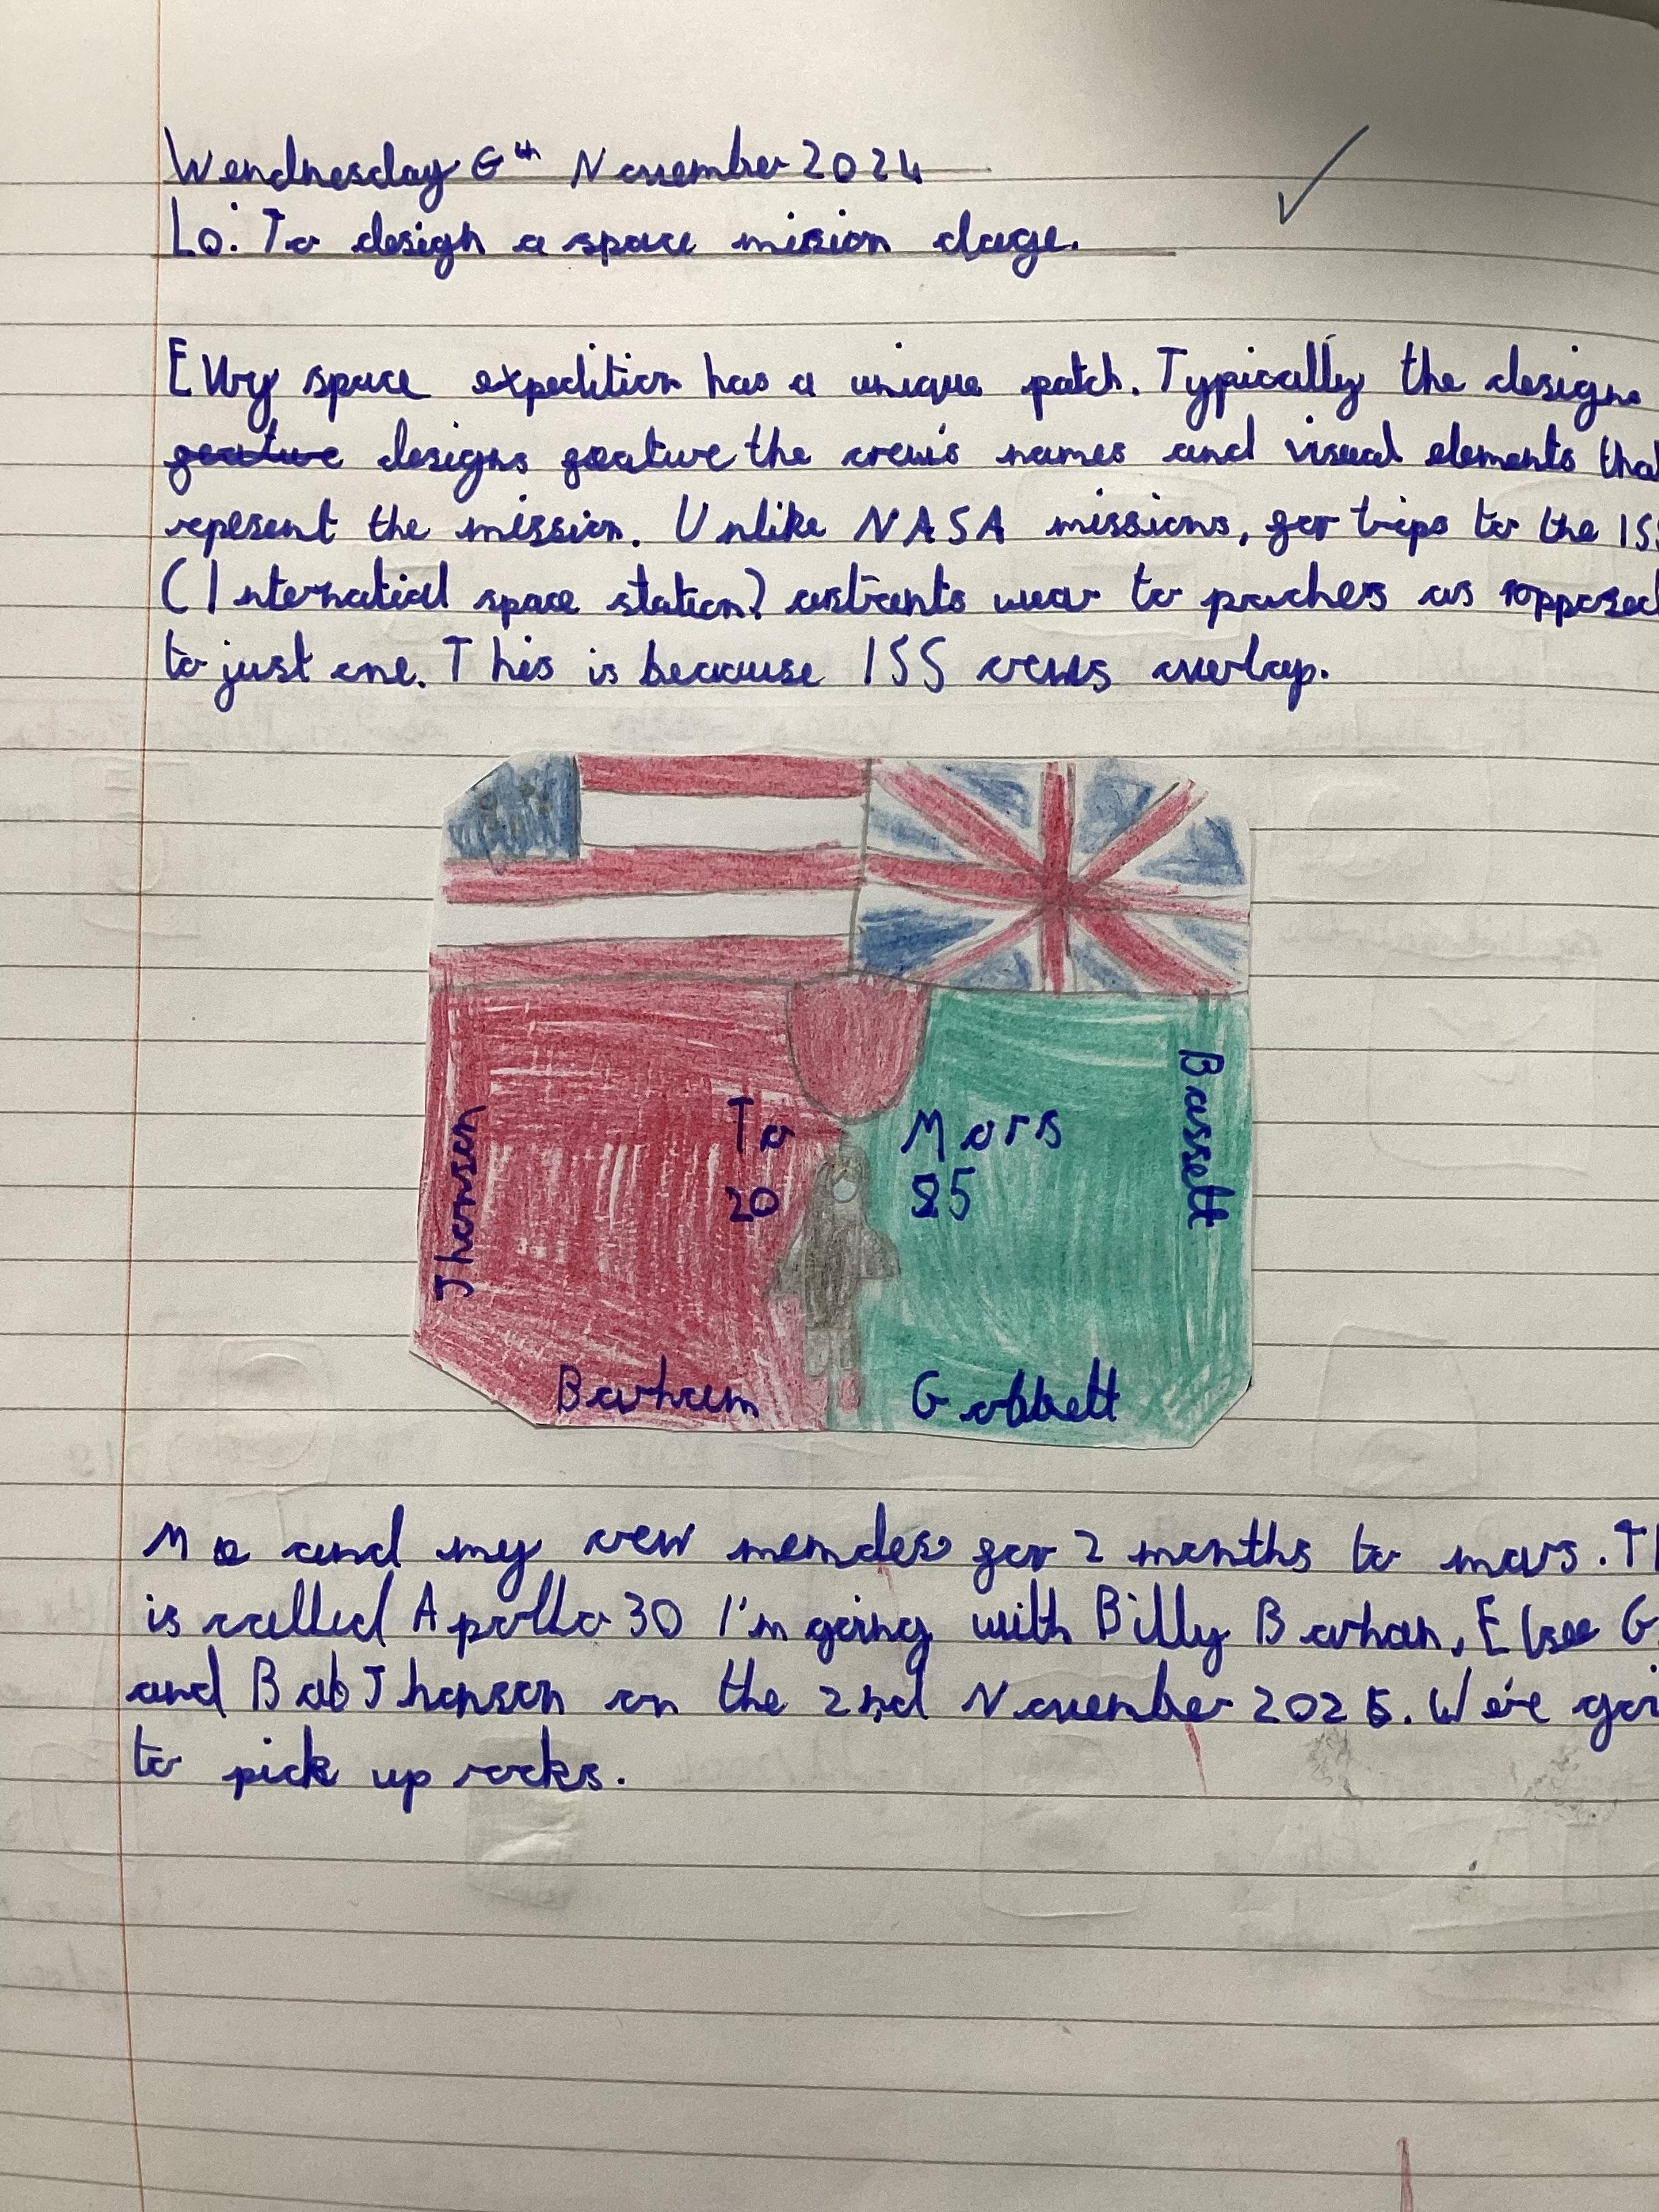 Wendnesday 6th November 2024
Lo: To design a space mision dage.
Evry space expedition has a unique patch. Typically the designs
geature designs geature the crew's names and visual elements that
repesent the mission. Unlike NASA missions, gor trips to the ISS
(Internatial space station) astrants wear to paches as opposed
to just one. This is because ISS crews overlap.
To Mars
20 25
Jhonson
Bassett
Barham Gobbett
Me and my crew memdes gor 2 months to mars. Th
is called Apollo 30 I'm going with Billy Barhan, Elsee G
and Bob Jhonson on the 2nd November 2025. We're goi
to pick up rocks.